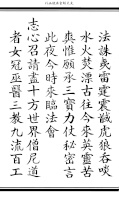 法誅夷雷霆震誡虎狼吞啖
水火焚漂古往今來英靈苦
爽惟願承三寶力仗秘密言
此夜今時來臨法會
志心召請盡十方世界僧尼道
者女冠巫醫三教九流百工